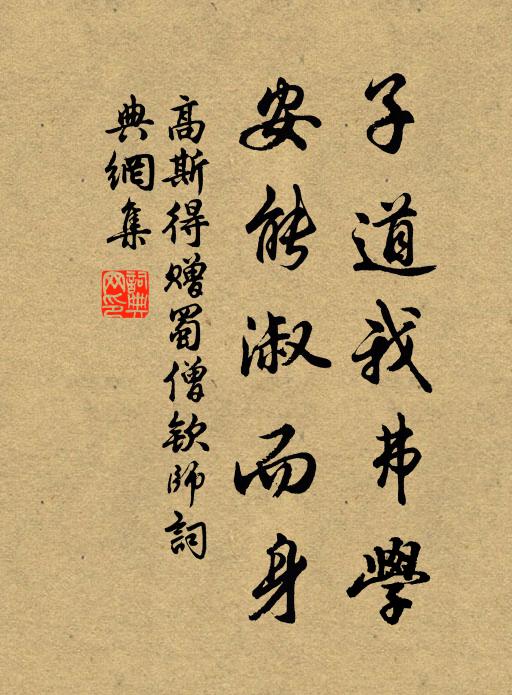 子道我弗學
安能淑而身
高斯得贈蜀僧欽師詞
典網集
詞典網印